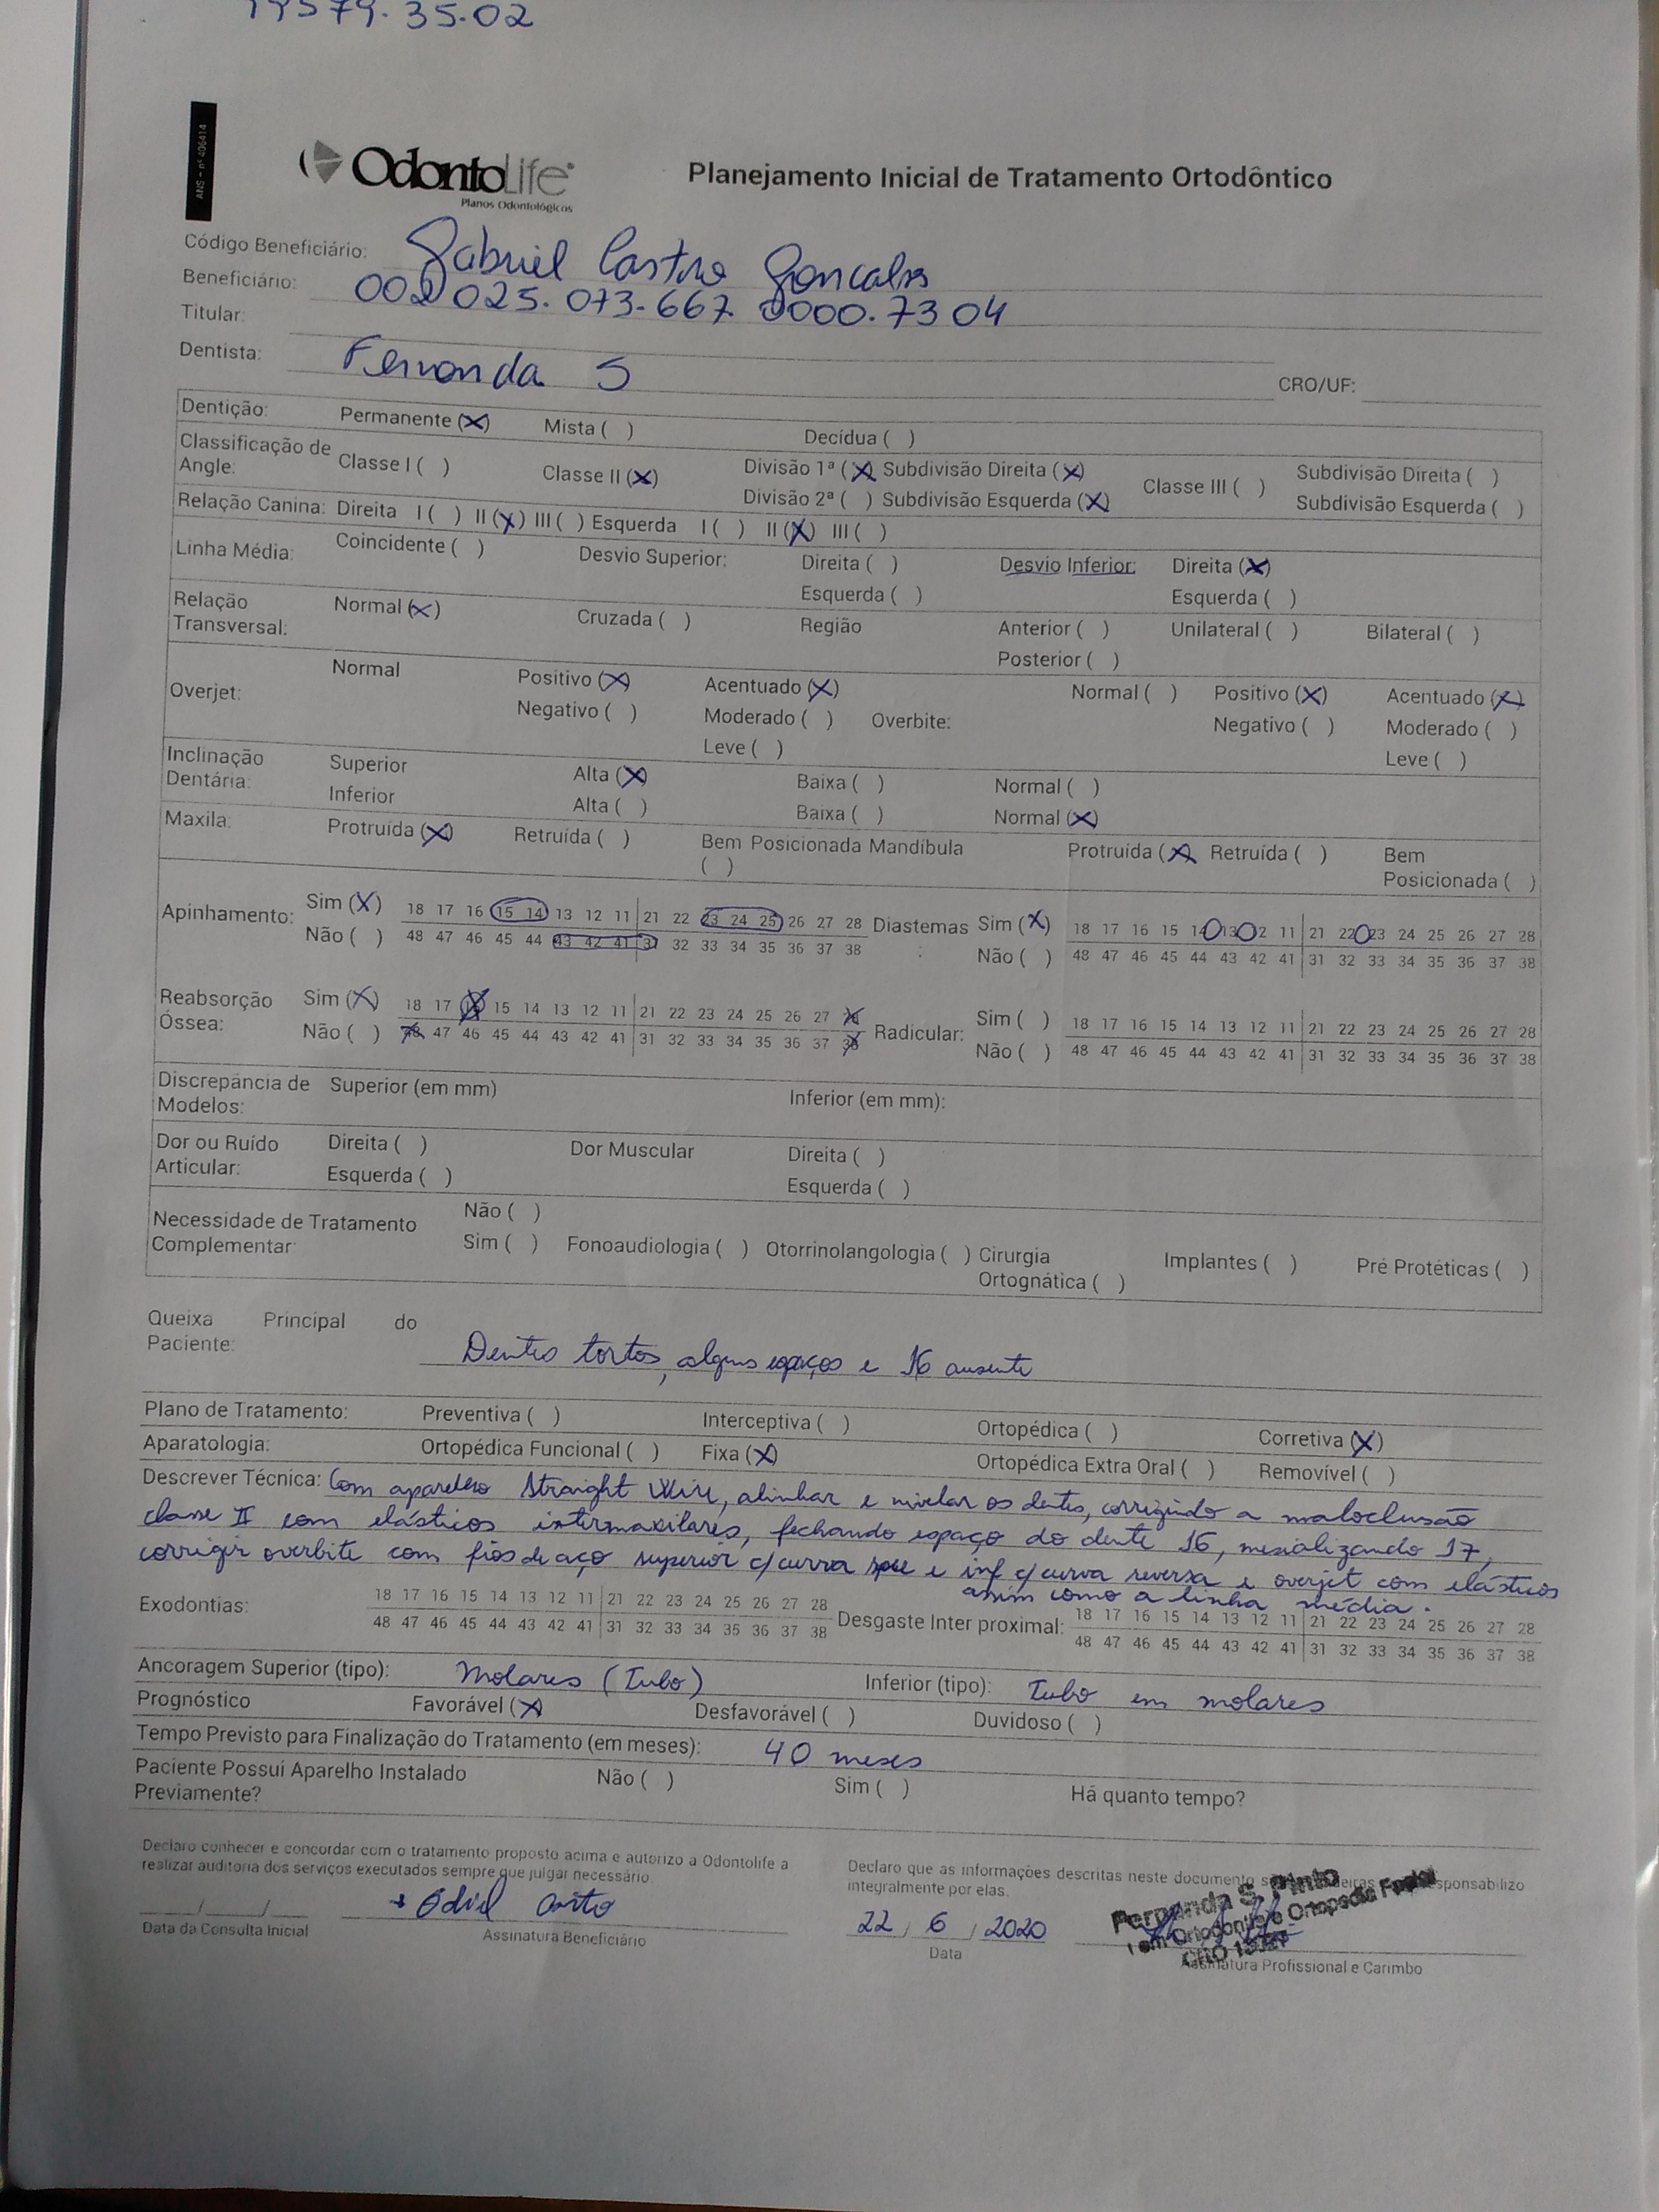 35.02
ANS - nº 406414
OdontoLife
Planos Odontológicos
Planejamento Inicial de Tratamento Ortodôntico
Código Beneficiário: Gabriel Castro Goncalves
Beneficiário: 002 025. 073. 667. 0000. 73 04
Titular:
Dentista: Fernanda S
CRO/UF:
Dentição: Permanente (X) Mista ( ) Decídua ( )
Classificação de Angle: Classe I ( ) Classe II (X) Divisão 1ª (X) Subdivisão Direita (X) Classe III ( ) Subdivisão Direita ( )
Divisão 2ª ( ) Subdivisão Esquerda (X) Subdivisão Esquerda ( )
Relação Canina: Direita I ( ) II (X) III ( ) Esquerda I ( ) II (X) III ( )
Linha Média: Coincidente ( ) Desvio Superior: Direita ( ) Desvio Inferior: Direita (X)
Esquerda ( ) Esquerda ( )
Relação Transversal: Normal (X) Cruzada ( ) Região Anterior ( ) Unilateral ( ) Bilateral ( )
Posterior ( )
Overjet: Normal Positivo (X) Acentuado (X) Overbite: Normal ( ) Positivo (X) Acentuado (X)
Negativo ( ) Moderado ( ) Negativo ( ) Moderado ( )
Leve ( ) Leve ( )
Inclinação Dentária: Superior Alta (X) Baixa ( ) Normal ( )
Inferior Alta ( ) Baixa ( ) Normal (X)
Maxila: Protruída (X) Retruída ( ) Bem Posicionada ( ) Mandíbula Protruída (X) Retruída ( ) Bem Posicionada ( )
Apinhamento: Sim (X) 18 17 16 15 14 13 12 11 21 22 23 24 25 26 27 28 Diastemas: Sim (X) 18 17 16 15 14 13 12 11 21 22 23 24 25 26 27 28
Não ( ) 48 47 46 45 44 43 42 41 31 32 33 34 35 36 37 38 Não ( ) 48 47 46 45 44 43 42 41 31 32 33 34 35 36 37 38
Reabsorção Óssea: Sim (X) 18 17 16 15 14 13 12 11 21 22 23 24 25 26 27 28 Radicular: Sim ( ) 18 17 16 15 14 13 12 11 21 22 23 24 25 26 27 28
Não ( ) 48 47 46 45 44 43 42 41 31 32 33 34 35 36 37 38 Não ( ) 48 47 46 45 44 43 42 41 31 32 33 34 35 36 37 38
Discrepância de Modelos: Superior (em mm) Inferior (em mm):
Dor ou Ruído Articular: Direita ( ) Dor Muscular Direita ( )
Esquerda ( ) Esquerda ( )
Necessidade de Tratamento Complementar: Não ( )
Sim ( ) Fonoaudiologia ( ) Otorrinolangologia ( ) Cirurgia Ortognática ( ) Implantes ( ) Pré Protéticas ( )
Queixa Principal do Paciente: Dentes tortos, alguns espaços e 16 ausente
Plano de Tratamento: Preventiva ( ) Interceptiva ( ) Ortopédica ( ) Corretiva (X)
Aparatologia: Ortopédica Funcional ( ) Fixa (X) Ortopédica Extra Oral ( ) Removível ( )
Descrever Técnica: Com aparelho Straight Wire, alinhar e nivelar os dentes, corrigindo a maloclusão
classe II com elásticos intermaxilares, fechando espaço do dente 16, mesializando 17,
corrigir overbite com fios de aço superior c/ curva spee e inf c/ curva reversa e overjet com elásticos
assim como a linha média.
Exodontias: 18 17 16 15 14 13 12 11 21 22 23 24 25 26 27 28 Desgaste Inter proximal: 18 17 16 15 14 13 12 11 21 22 23 24 25 26 27 28
48 47 46 45 44 43 42 41 31 32 33 34 35 36 37 38 48 47 46 45 44 43 42 41 31 32 33 34 35 36 37 38
Ancoragem Superior (tipo): Molares (Tubo) Inferior (tipo): Tubo em molares
Prognóstico Favorável (X) Desfavorável ( ) Duvidoso ( )
Tempo Previsto para Finalização do Tratamento (em meses): 40 meses
Paciente Possui Aparelho Instalado Previamente? Não ( ) Sim ( ) Há quanto tempo?
Declaro conhecer e concordar com o tratamento proposto acima e autorizo a Odontolife a
realizar auditoria dos serviços executados sempre que julgar necessário.
Declaro que as informações descritas neste documento responsabilizo
integralmente por elas.
Data da Consulta Inicial
Assinatura Beneficiário
22 / 6 / 2020
Data
Fernanda S. Pinto
em Ortodontia e Ortopedia Facial
CRO
Assinatura Profissional e Carimbo